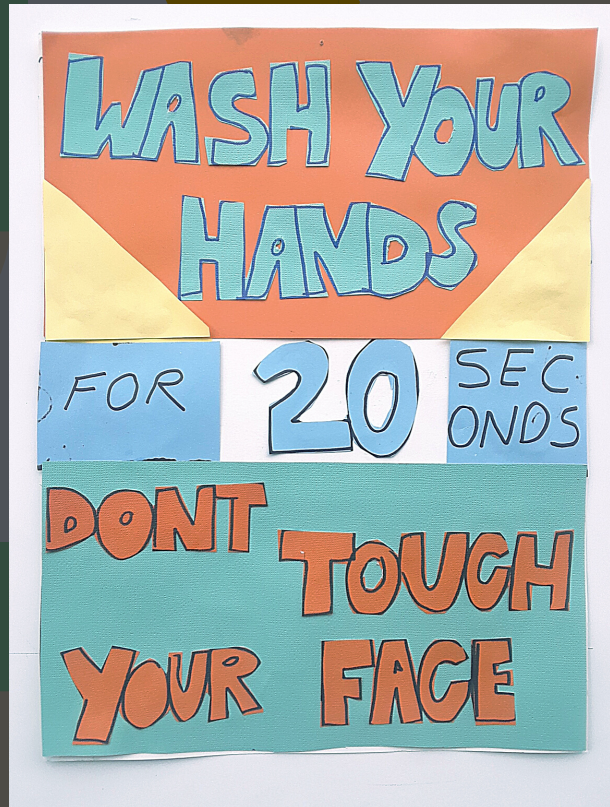 WASH YOUR
HANDS
FOR 20 SEC.
ONDS
DONT
TOUCH
YOUR FACE